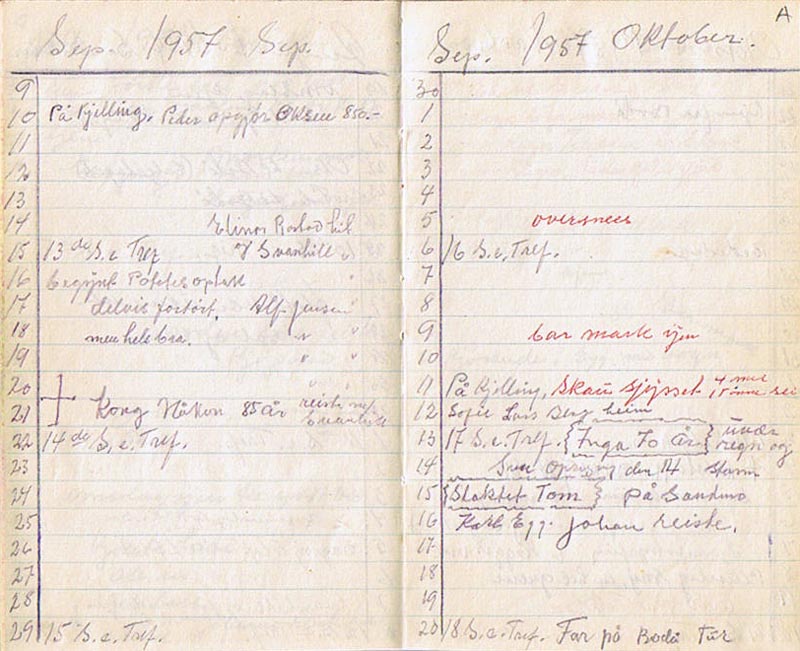 Sep. 1957 Sep.
9
10 På Kjelling. Peder opgjør Oksen 850.-
11
12
13
14 Elinor Rostad hit
15 13de S. e. Tref. Svanhill
16 begynt Potetesoptatt
17 delvis fortørt. Alf Jensen "
18 men hele bra. " "
19 " "
20 " "
21 Kong Håkon 85 år reiste
Svanhill
22 14de S. e. Tref.
23
24
25
26
27
28
29 15 S. e. Tref.
A
Sep. 1957 Oktober.
30
1
2
3
4
5 oversnees
6 16 S. e. Tref.
7
8
9 bar mark
10
11 På Kjelling, Skau
12 Sofie Lars Berg heim
13 17 S. e. Tref. {Inga 70 År} uvær
regn og
14 den 14 storm
15 {Slaktet Tom} på Sandmo
16 Karl Egg. Johan reiste.
17
18
19
20 18 S. e. Tref. Far på Bodø Tur